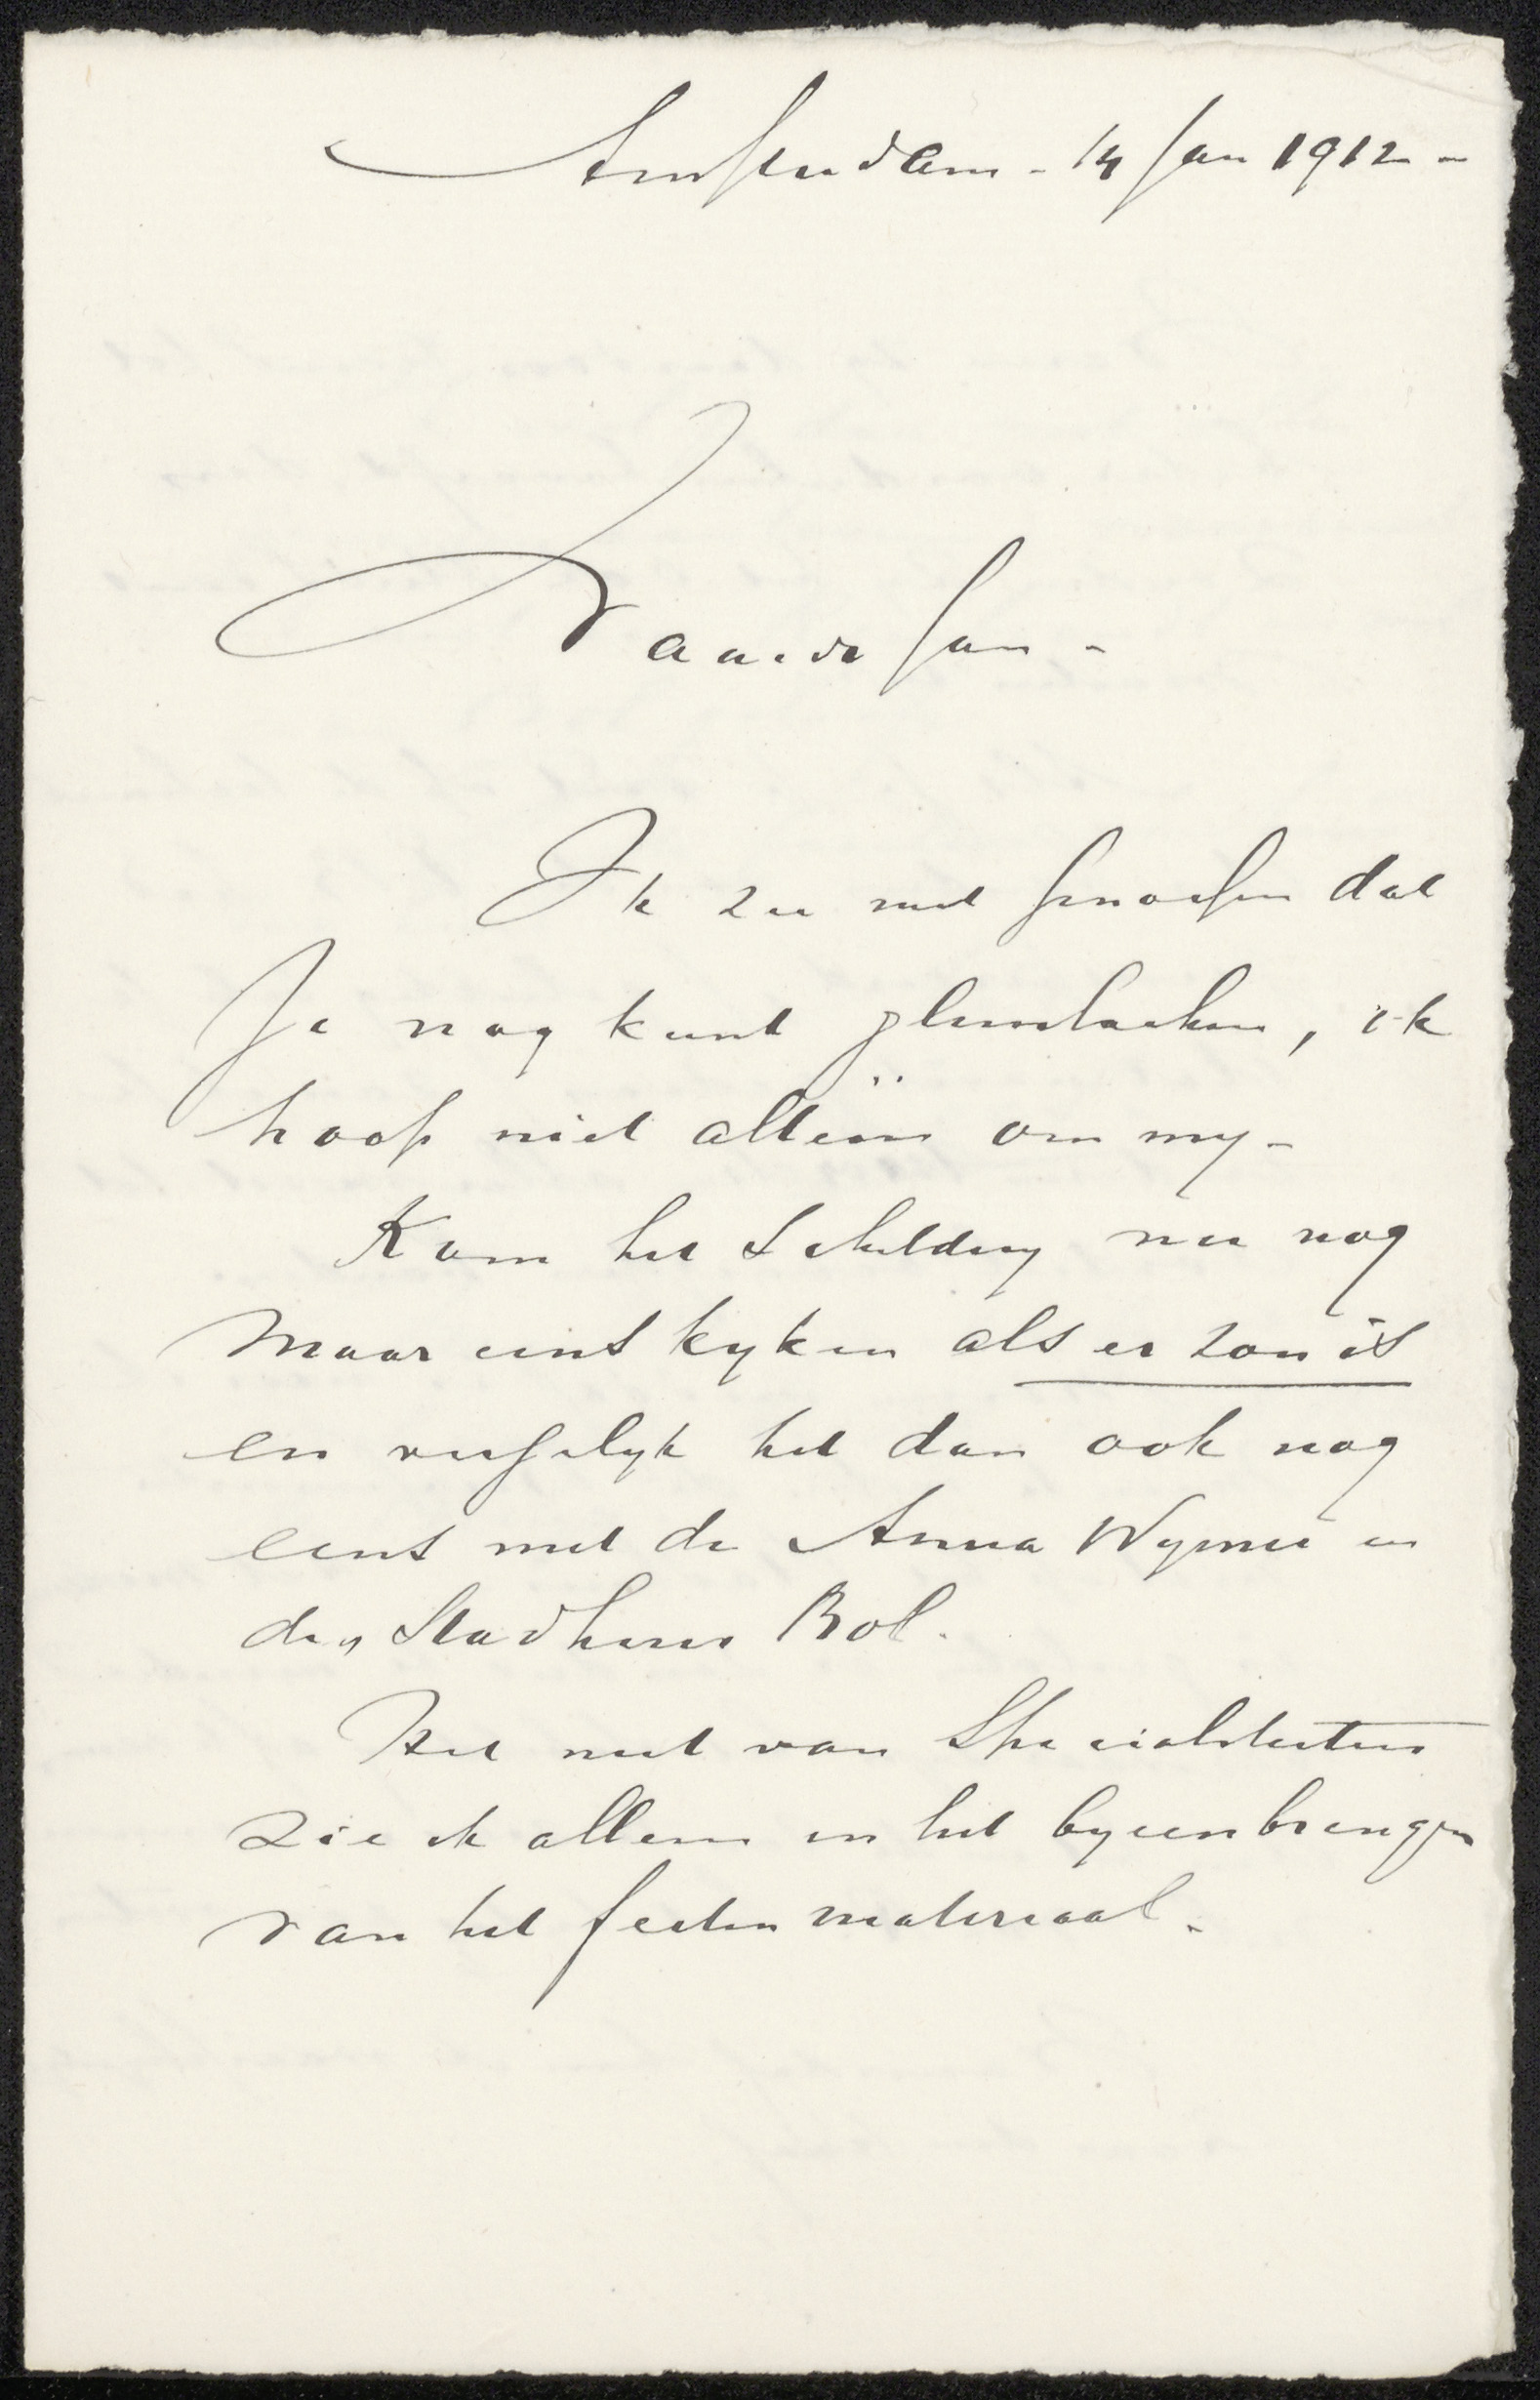 Amsterdam - 14 Jan 1912 -
Waarde Jan -
Ik zie met genoegen dat
Je nog kunt glimlachen, ik
hoop niet alleën om my -
Kom het Schildery nu nog
maar eens kyken als er zon is
en vergelyk het dan ook nog
eens met de Anna Wymer en
de „ Stadhuis Bol.
Het nut van Specialiteiten
zie ik alleen in het byeenbrengen
van het feiten materiaal.